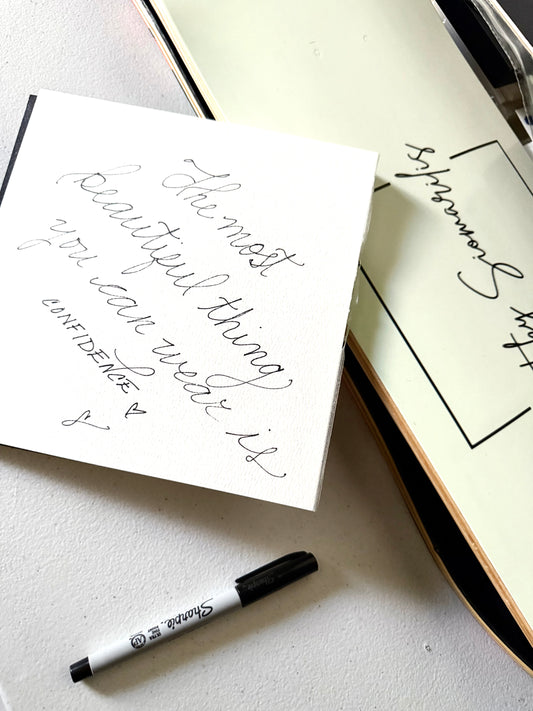 The most
beautiful thing
you can wear is
CONFIDENCE ♡
Hey
Sharpie